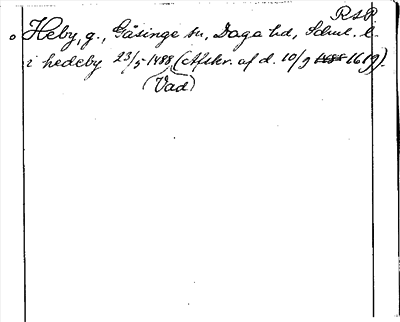 RSP.
Heby, g., Gåsinge sn, Daga hd, Söml. l.
i hedeby 23/5 1488 (Afskr. af d. 10/9 1619).
(Vad)